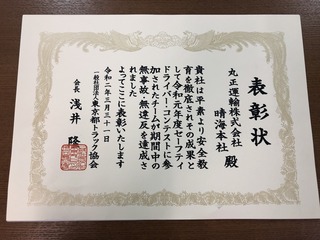 表彰状
丸正運輸株式会社
晴海本社 殿
貴社は平素より安全教
育を徹底されその成果と
して令和元年度セーフティ
ドライバー・コンテストに参
加されたチームが期間中の
無事故・無違反を達成さ
れました
よってここに表彰いたします
令和二年三月三十一日
一般社団法人東京都トラック協会
会長 浅井 隆